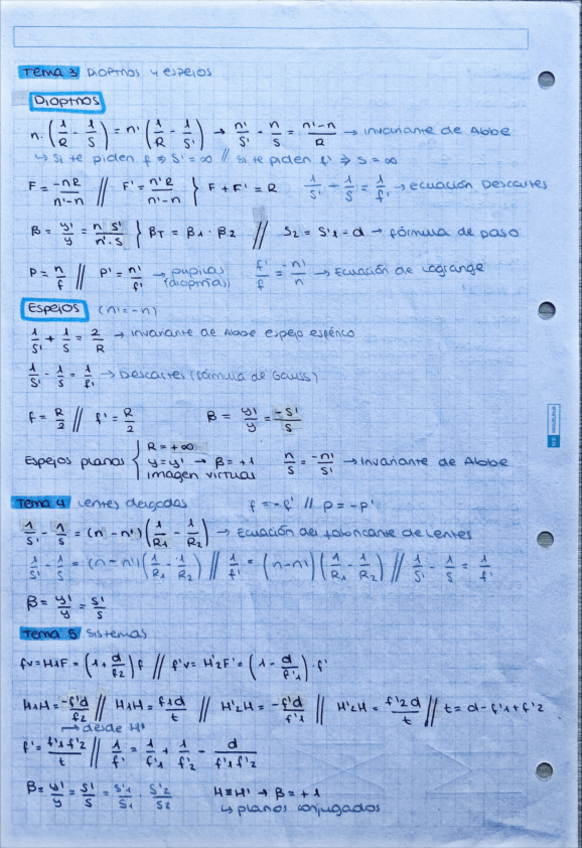 Tema 3 Dioptrios y espejos
Dioptrios
n · (1/R - 1/S) = n' (1/R - 1/S') → n'/S' - n/S = n'-n/R → invariante de Abbe
↳ si te piden f ⇒ S' = ∞ // si te piden f' ⇒ S = ∞
F = -nR/n'-n // F' = n'R/n'-n } F + F' = R 1/S' - 1/S = 1/f' → ecuación Descartes
β = y'/y = n S'/n'·S } βT = β1 · β2 // S2 = S'1 - d → fórmula de paso
P = n/f // P' = n'/f' → (dioptrías) f'/f = -n'/n → Ecuación de Lagrange
Espejos (n' = -n)
1/S' + 1/S = 2/R → invariante de Abbe espejo esférico
1/S' - 1/S = 1/f' → Descartes (fórmula de Gauss)
f = R/2 // f' = R/2 β = y'/y = -S'/S
Espejos planos { R = +∞
y = y' → β = +1
imagen virtual
n/S = -n'/S' → Invariante de Abbe
Tema 4 Lentes delgadas f = -f' // P = -P'
1/S' - 1/S = (n - n') (1/R1 - 1/R2) → Ecuación del fabricante de lentes
1/S' - 1/S = (n - n') (1/R1 - 1/R2) // 1/f' = (n - n') (1/R1 - 1/R2) // 1/S' - 1/S = 1/f'
β = y'/y = S'/S
Tema 5 Sistemas
fv = H1F = (1 + d/f2) f // f'v = H'2F' = (1 - d/f'1) · f'
H1H = -f'd/f2 // H1H = f1d/t // H'2H' = -f'd/f'1 // H'2H' = f'2d/t // t = d - f'1 + f'2
→ desde H'
f' = f'1f'2/t // 1/f' = 1/f'1 + 1/f'2 - d/f'1f'2
β = y'/y = S'/S = S'1/S1 · S'2/S2 H≡H' → β = +1
↳ planos conjugados